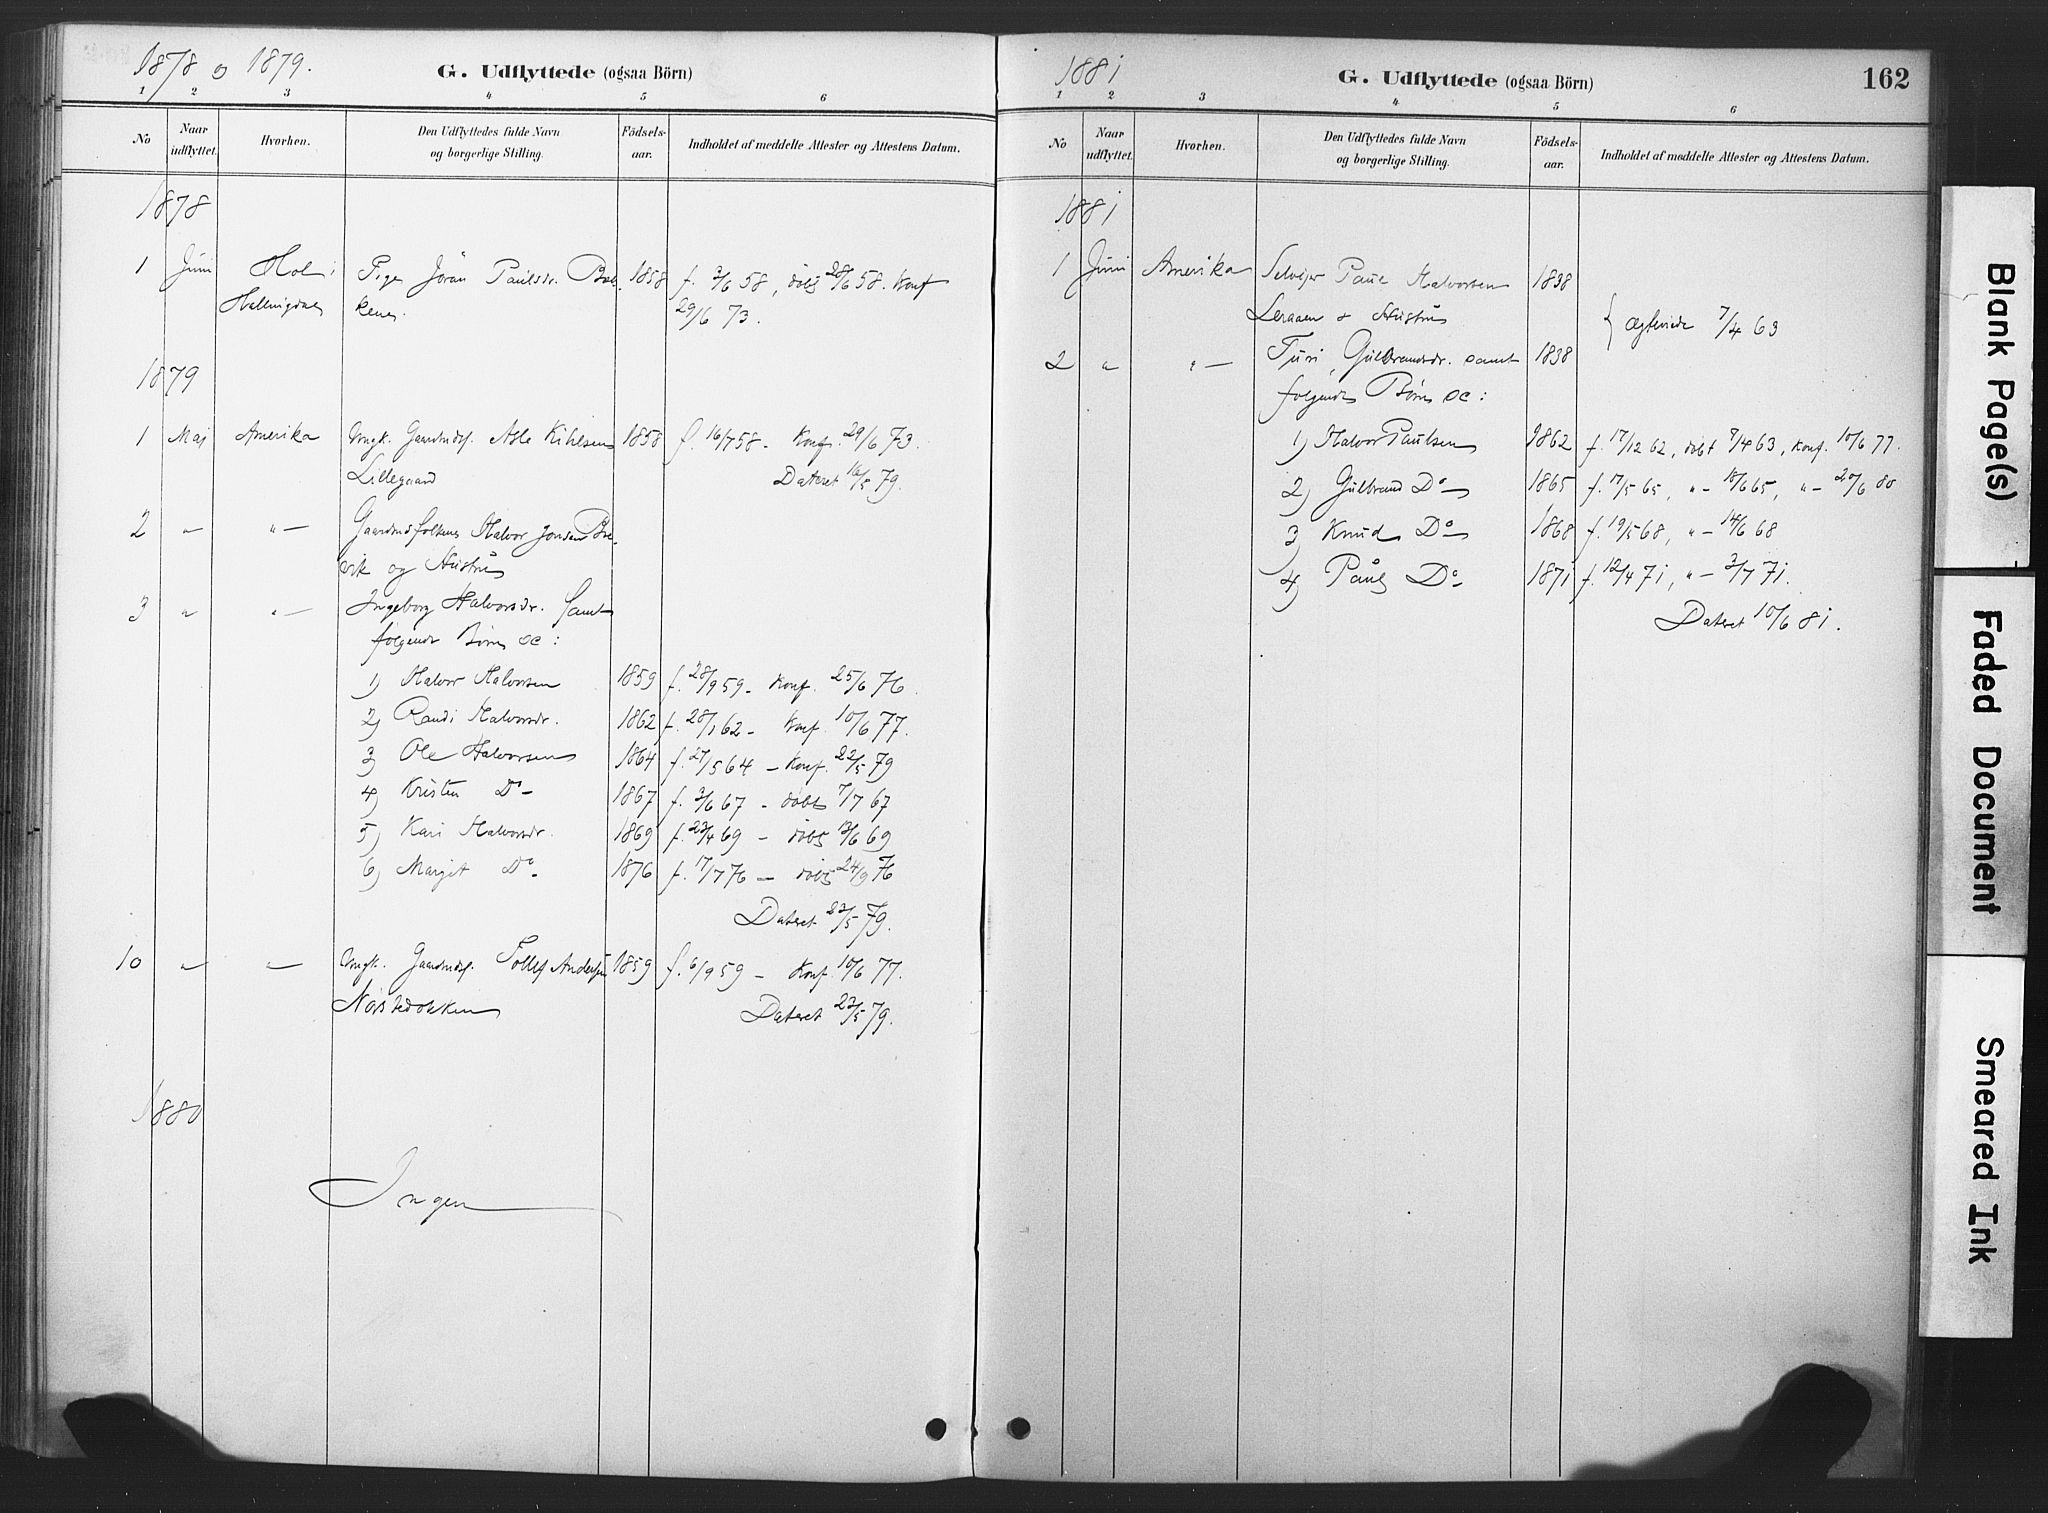 1878 og 1879.
G. Udflyttede (ogsaa Börn)
1 2 3 4 5 6
No
Naar udflyttet.
Hvorhen.
Den Udflyttedes fulde Navn og borgerlige Stilling.
Födselsaar.
Indholdet af meddelte Attester og Attestens Datum.
1878
1 Juni Hol i Pige Jöran Paulsdr. Bak- 1858 f. 3/6 58, döbt 28/6 58. Konf
Hallingdal kene. 29/6 73.
1879
1 Maj Amerika Ungk. Gaardmds. Asle Kihlsen 1858 f. 16/7 58 - Konf. 29/6 73.
Lillegaard Dateret 16/5 79.
2 " "— Gaardmdsfolkene Halvor Jonsen Bre-
vik og Hustru
3 " "— Ingeborg Halvorsdr. Samt
følgende Børn sc:
1) Halvor Halvorsen 1859 f. 28/9 59 - Konf. 25/6 76.
2) Randi Halvorsdr. 1862 f. 28/1 62 - Konf. 10/6 77.
3) Ole Halvorsen 1864 f. 27/5 64 - Konf. 22/5 79
4) Kristen Do - 1867 f. 3/6 67 - döbt 7/7 67
5) Kari Halvorsdr. 1869 f. 23/4 69 - döbt 13/6 69
6) Margit Do - 1876 f. 17/7 76 - döbt 24/9 76
Dateret 23/5 79.
10 " "— Ungk. Gaardmds. Tollef Andersen 1859 f. 6/9 59 - Konf. 10/6 77.
Nørstedokken Dateret 23/5 79.
1880
Ingen
1881
G. Udflyttede (ogsaa Börn)
162
1 2 3 4 5 6
No
Naar udflyttet.
Hvorhen.
Den Udflyttedes fulde Navn og borgerlige Stilling.
Födselsaar.
Indholdet af meddelte Attester og Attestens Datum.
1881
1 Juni Amerika Selvejer Paul Halvorsen 1838
Leraaen & Hustru { Ægteviede 7/4 63
2 " "— Turi Gulbrandsdr. samt 1838
følgende Børn sc:
1) Halvor Paulsen 1862 f. 17/12 62, döbt 7/4 63, Konf. 10/6 77.
2) Gulbrand Do - 1865 f. 17/5 65, " - 18/6 65, " - 20/6 80
3) Knud Do - 1868 f. 19/5 68, " - 14/6 68
4) Paul Do - 1871 f. 12/4 71, " - 2/7 71.
Dateret 10/6 81.
Blank Page(s)
Faded Document
Smeared Ink